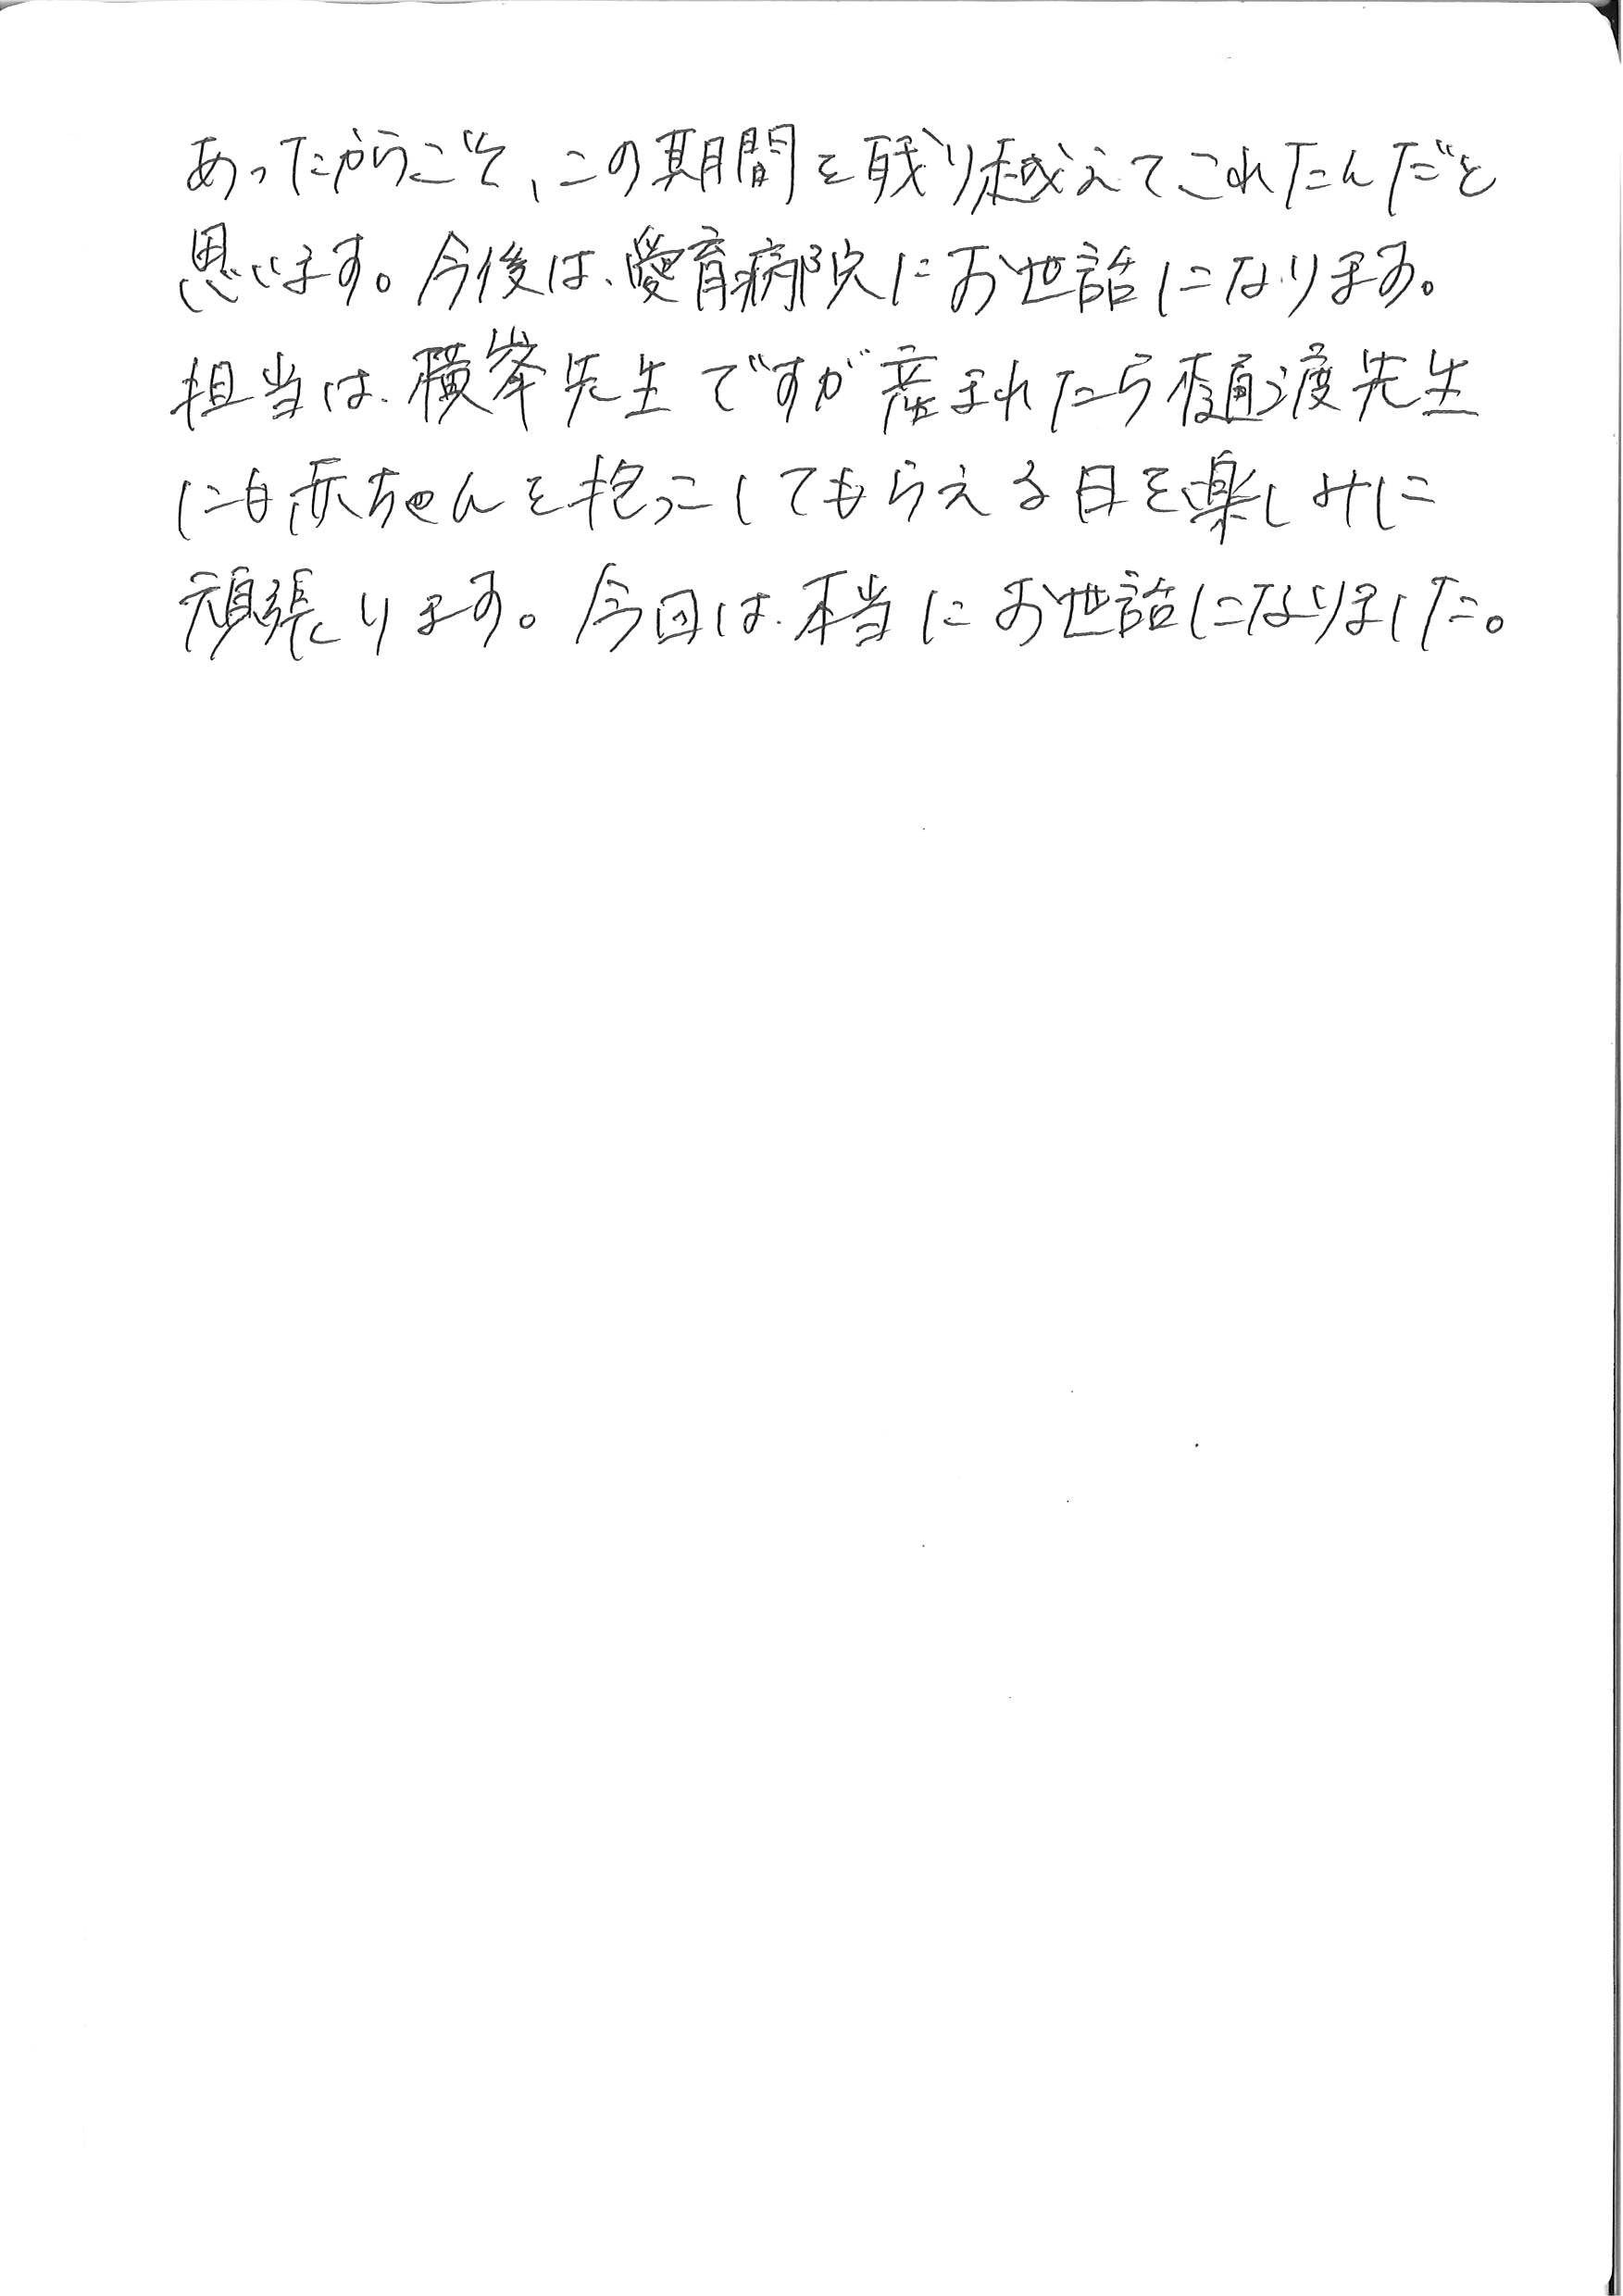 あったからこそ、この期間を残り越えてこれたんだと
思います。今後は、愛育病院にお世話になります。
担当は、横峯先生ですが産まれたら樋渡先生
にも赤ちゃんを抱っこしてもらえる日を楽しみに
頑張ります。今回は、本当にお世話になりました。